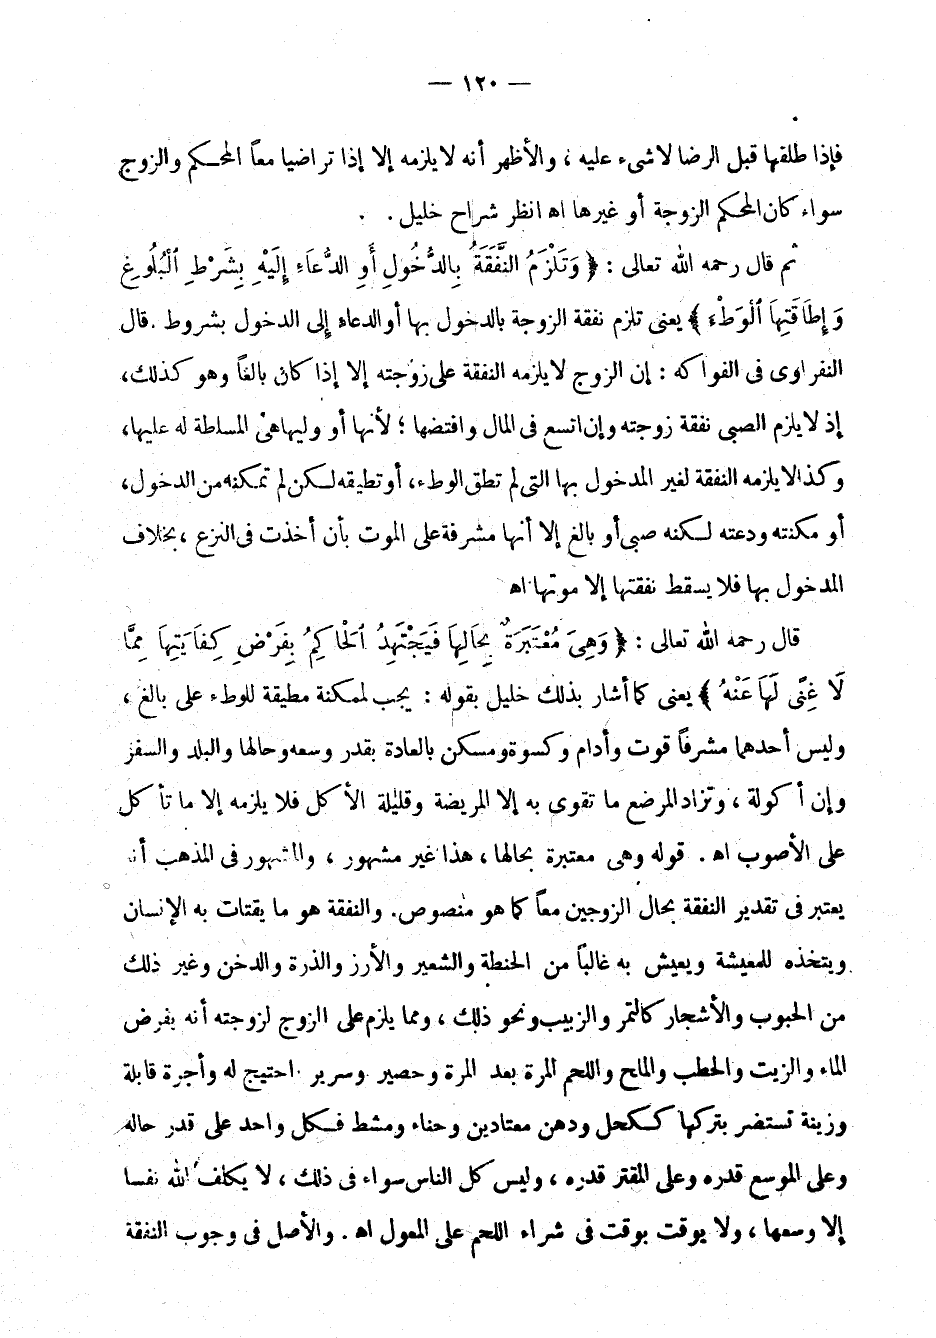 — ١٢٠ —
فإذا طلقها قبل الرضا لاشىء عليه ، والأظهر أنه لايلزمه إلا إذا تراضيا معاً المحكم والزوج
سواء كان المحكم الزوجة أو غيرها اه انظر شراح خليل .
ثم قال رحمه الله تعالى : ﴿ وَتَلْزَمُ النَّفَقَةُ بِالدُّخُولِ أَوِ الدُّعَاءِ إِلَيْهِ بِشَرْطِ ٱلْبُلُوغِ
وَإِطَاقَتِهَا ٱلْوَطْءَ ﴾ يعنى تلزم نفقة الزوجة بالدخول بها أو الدعاء إلى الدخول بشروط . قال
النفراوى فى الفواكه : إن الزوج لايلزمه النفقة على زوجته إلا إذا كان بالغاً وهو كذلك،
إذ لايلزم الصبى نفقة زوجته وإن اتسع فى المال وافتضها ؛ لأنها أو وليها هى المسلطة له عليها،
وكذا لايلزمه النفقة لغير المدخول بها التى لم تطق الوطء، أو تطيقه لكن لم تمكنه من الدخول،
أو مكنته ودعته لكنه صبى أو بالغ إلا أنها مشرفة على الموت بأن أخذت فى النزع ، بخلاف
المدخول بها فلا يسقط نفقتها إلا موتها اه
قال رحمه الله تعالى : ﴿ وَهِىَ مُعْتَبَرَةٌ بِحَالِهَا فَيَجْتَهِدُ ٱلْحَاكِمُ بِفَرْضِ كِفَايَتِهَا مِمَّا
لَا غِنًى لَهَا عَنْهُ ﴾ يعنى كما أشار بذلك خليل بقوله : يجب لممكنة مطيقة للوطء على بالغ ،
وليس أحدهما مشرفاً قوت وأدام وكسوة ومسكن بالعادة بقدر وسعه وحالها والبلد والسفر
وإن أكولة ، وتزاد المرضع ما تقوى به إلا المريضة وقليلة الأكل فلا يلزمه إلا ما تأكل
على الأصوب اه . قوله وهى معتبرة بحالها ، هذا غير مشهور ، والمشهور فى المذهب أنه
يعتبر فى تقدير النفقة بحال الزوجين معاً كما هو منصوص. والنفقة هو ما يقتات به الإنسان
ويتخذه للمعيشة ويعيش به غالباً من الحنطة والشعير والأرز والذرة والدخن وغير ذلك
من الحبوب والأشجار كالتمر والزبيب ونحو ذلك ، ومما يلزم على الزوج لزوجته أنه يفرض
الماء والزيت والحطب والملح واللحم المرة بعد المرة وحصير وسرير احتيج له وأجرة قابلة
وزينة تستضر بتركها ككحل ودهن معتادين وحناء ومشط فكل واحد على قدر حاله
وعلى الموسع قدره وعلى المقتر قدره ، وليس كل الناس سواء فى ذلك ، لا يكلف الله نفسا
إلا وسعها ، ولا يوقت بوقت فى شراء اللحم على المعول اه . والأصل فى وجوب النفقة